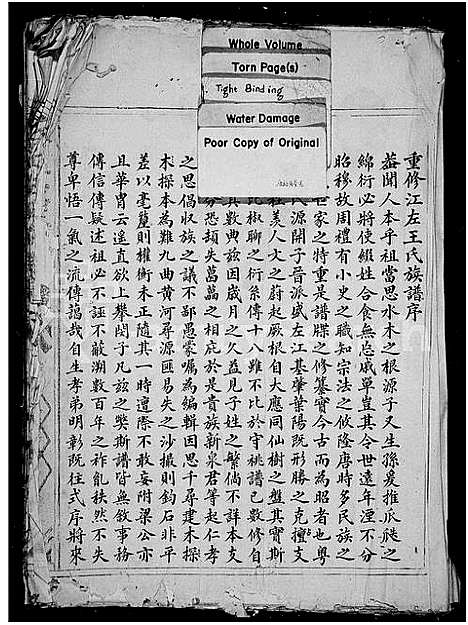 Whole Volume
Torn Page(s)
Tight Binding
Water Damage
Poor Copy of Original
重修江左王氏族譜序
蓋聞人本乎祖當思水木之根源子又生孫爰推瓜瓞之
綿衍必將使綴姓合食無忘戚單豈其令世遠年湮不分
昭穆故周禮有小史之職知宗法之攸隆唐時多民族之
世家之特重是譜牒之修纂實今古而為昭者也粵
氏源開子晉派盛左江基肇葉陽既形勝之克擅支
社美人文之蔚起厥根自大應同仙樹之盤其實斯
比椒聊之衍系傳十八雖不比於守祧譜已數修自
其數典茲因歲月之久益見子姓之繁倘不詳本支
分恐頡失葛藟之相庇於是貴族新泉君等起仁孝
之思倡收族之議不鄙愚蒙囑為編輯因思千尋建木探
木探本為難九曲黃河尋源匪易失之沙撮則鈞石非平
差以毫釐則權衡未正隨其一時遭際不敢妄附梁公亦
且華冑云遙直欲上攀閔子凡茲之獘斯譜皆無敘事務
傳信傳疑述祖必不誣不蔽溯數百年之祚胤秩然不失
尊卑悟一氣之流傳藹哉自生孝弟明彰既往式序將來